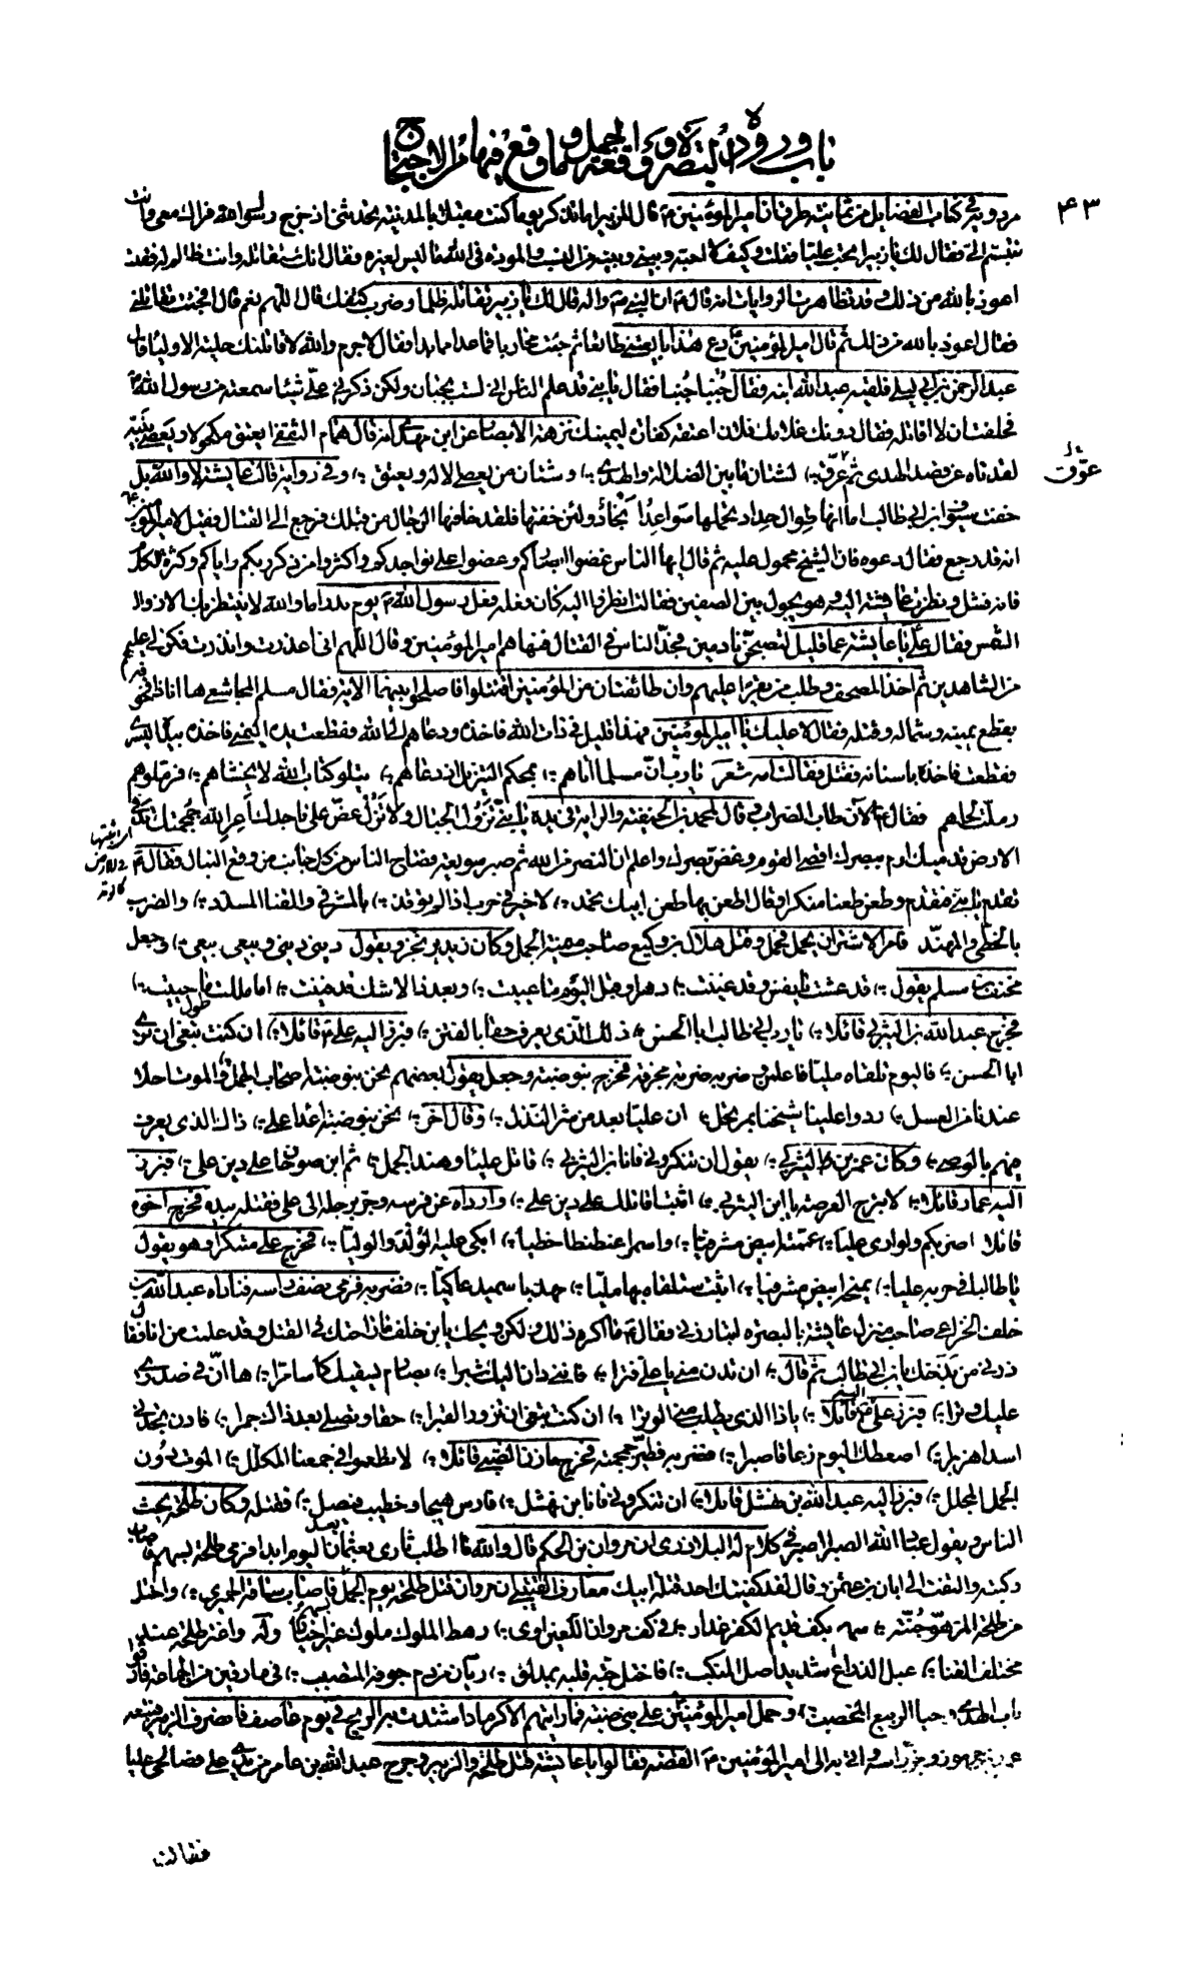 باب ورود البصرة ووقعة الجمل وما وقع فيها من الاحتجاج
٤٣
مردويه في كتاب الفضايل من ثمانية طرق ان امير المؤمنين ع قال للزبير اما تذكر يوما كنت مقبلا بالمدينة تحدثني اذ خرج رسول الله فراك معي وانت
تتبسم الي فقال لك يا زبير اتحب عليا فقلت وكيف لا احبه وبيني وبينه من النسب والمودة في الله ما ليس لغيره فقال انك ستقاتله وانت ظالم له فقلت
اعوذ بالله من ذلك وقد تظاهرت الروايات انه قال ع ان النبي ص واله قال لك يا زبير تقاتله ظلما وضرب كتفك قال اللهم نعم قال افجئت تقاتلني
فقال اعوذ بالله من ذلك ثم قال امير المؤمنين ع دع هذا بايعتني طائعا ثم جئت محاربا فما عدا مما بدا فقال لا جرم والله لا قاتلتك حلية الاوليا قال
عبد الرحمن بن ابي ليلى فلقيه عبد الله ابنه فقال جبنا جبنا فقال يا بني قد علم الناس اني لست بجبان ولكن ذكرني علي شيئا سمعته من رسول الله ص
فحلفت ان لا اقاتله فقال دونك غلامك فلان اعتقه كفارة ليمينك نزهة الابصار عن ابن مهدي انه قال همام الثقفي ايعتق مكحولا ويعصي نبيه
لقد تاه عن قصد الهدى ثم عوق لشتان ما بين الضلالة والهدى وشتان من يعصي الاله ويعتق وفي رواية قالت عايشة لا والله بل
عوّق
خفت سيوف ابن ابي طالب اما انها طوال حداد تحملها سواعد انجاد ولئن خفتها فلقد خافها الرجال من قبلك فرجع الى القتال فقيل لامير المؤمنين ع
انه قد رجع فقال دعوه فان الشيخ محمول عليه ثم قال ايها الناس غضوا ابصاركم وعضوا على نواجذكم واكثروا من ذكر ربكم واياكم وكثرة الكلام
فانه فشل ونظرت عايشة اليه وهو يجول بين الصفين فقالت انظروا اليه كان فعله فعل رسول الله ص يوم بدر اما والله لا ينتظر بك الا زوال
الشمس فقال علي يا عايشة عما قليل لتصبحن نادمين فجد الناس في القتال فنهاهم امير المؤمنين وقال اللهم اني اعذرت وانذرت فكن لي عليهم
من الشاهدين ثم اخذ المصحف وطلب من يقرا عليهم وان طائفتان من المؤمنين اقتتلوا فاصلحوا بينهما الاية فقال مسلم المجاشعي ها انا ذا فخوفه
بقطع يمينه وشماله وقتله فقال لا عليك يا امير المؤمنين فهذا قليل في ذات الله فاخذه ودعاهم الى الله فقطعت يده اليمنى فاخذه بيده اليسرى
فقطعت فاخذه باسنانه فقتل فقالت امه شعر يا رب ان مسلما اتاهم بمحكم التنزيل اذ دعاهم يتلو كتاب الله لا يخشاهم فرملوهم
رملت لحاهم فقال ع الان طاب الضراب وقال لمحمد بن الحنفية والراية في يده يا بني تزول الجبال ولا تزل عض على ناجذك اعر الله جمجمتك تد في
الارض قدميك ارم ببصرك اقصى القوم وغض بصرك واعلم ان النصر من الله ثم صبر سويعة فصاح الناس من كل جانب من وقع النبال فقال ع
تقدم يا بني فتقدم وطعن طعنا منكرا وقال اطعن بها طعن ابيك تحمد لا خير في حرب اذا لم توقد بالمشرفي والقنا المسدد والضرب
بالخطي والمهند فامر الاشتر ان يحمل فحمل وقتل هلال بن وكيع صاحب ميمنة الجمل وكان زيد يرتجز ويقول ديني ديني وبيعي بيعي وجعل
مخنف بن سليم يقول قد عشت يا نفس وقد غنيت دهرا وقبل اليوم ما عييت وبعد ذا لا شك قد فنيت اما مللت طول ما حييت
فخرج عبد الله بن اليثربي قائلا يا رب اني طالب ابا الحسن ذلك الذي يعرف حقا بالفتن فبرز اليه علي ع قائلا ان كنت تبغي ان ترى
ابا الحسن فاليوم تلقاه مليا فاعلمن وضربه ضربة مجرفة فخرج بنو ضبة وجعل يقول بعضهم نحن بنو ضبة اصحاب الجمل والموت احلا
عندنا من العسل ردوا علينا شيخنا بمرتحل ان عليا بعد من شر النذل وقال اخر نحن بنو ضبة اعدا علي ذاك الذي يعرف
فيهم بالوصي وكان عمرو بن اليثربي يقول ان تنكروني فانا ابن اليثربي قاتل علبا وهند الجمل ثم ابن صوحان على دين علي فبرز
اليه عمار قائلا لا تبرح العرصة يا ابن اليثربي اثبت اقاتلك على دين علي وارداه عن فرسه وجر برجله الى علي فقتله بيده فخرج اخوه
قائلا اضربكم ولو ارى عليا عممته ابيض مشرفيا واسمرا عنطنطا خطيا ابكي عليه الولد والوليا فخرج علي متنكرا وهو يقول
يا طالبا في حربه عليا يمنحه ابيض مشرفيا اثبت ستلقاه بها مليا مهذبا سميدعا كميا فضربه فرمى نصف راسه فناداه عبد الله بن
خلف الخزاعي صاحب منزل عايشة بالبصرة اتبارزني فقال ع ما اكره ذلك ولكن ويحك يا ابن خلف ما راحتك في القتل وقد علمت من انا فقال
ذرني من بذخك يا ابن ابي طالب ثم قال ان تدن مني يا علي فترا فانني دان اليك شبرا بصارم يسقيك كاسا مرا ها ان في صدري
عليك وترا فبرز علي ع اليه قائلا يا ذا الذي يطلب مني الوترا ان كنت تبغي ان تزور القبرا حقا وتصلى بعد ذاك جمرا فادن تجدني
اسدا هزبرا اصعطك اليوم زعاقا صبرا فضربه فطير جمجمته فخرج مازن الضبي قائلا لا تطمعوا في جمعنا المكلل الموت دون
الجمل المجلل فبرز اليه عبد الله بن نهشل قائلا ان تنكروني فانا ابن نهشل فارس هيجا وخطيب فيصل فقتله وكان طلحة يحث
الناس ويقول عباد الله الصبر الصبر في كلام له البلاذري ان مروان بن الحكم قال والله ما اطلب ثاري بعثمان بعد اليوم ابدا فرمى طلحة بسهم فاصاب
ركبته والتفت الى ابان بن عثمن وقال لقد كفيتك احد قتلة ابيك معارف القتيبي ان مروان قتل طلحة يوم الجمل فاصاب ساقه الحميري واختل
من طلحة المزهو جنته سهم بكف قديم الكفر غدار في كف مروان اللعين ارى رهط الملوك ملوك غير اخيار وله واغتر طلحة عند
مختلف القنا عبل الذراع شديد اصل المنكب فاختل حبة قلبه بمدلق ريان من دم جوفه المتصبب في مارقين من الجماعة فارقوا
باب الهدى وحيا الربيع المخصب وحمل امير المؤمنين على بني ضبة فما رايتهم الا كرماد اشتدت به الريح في يوم عاصف فانصرف الزبير فتبعه
عمرو بن جرموز وجز راسه واتى به الى امير المؤمنين ع القصة فقالوا يا عايشة قتل طلحة والزبير وجرح عبد الله بن عامر من يدي علي فصالحي عليا
فقالت